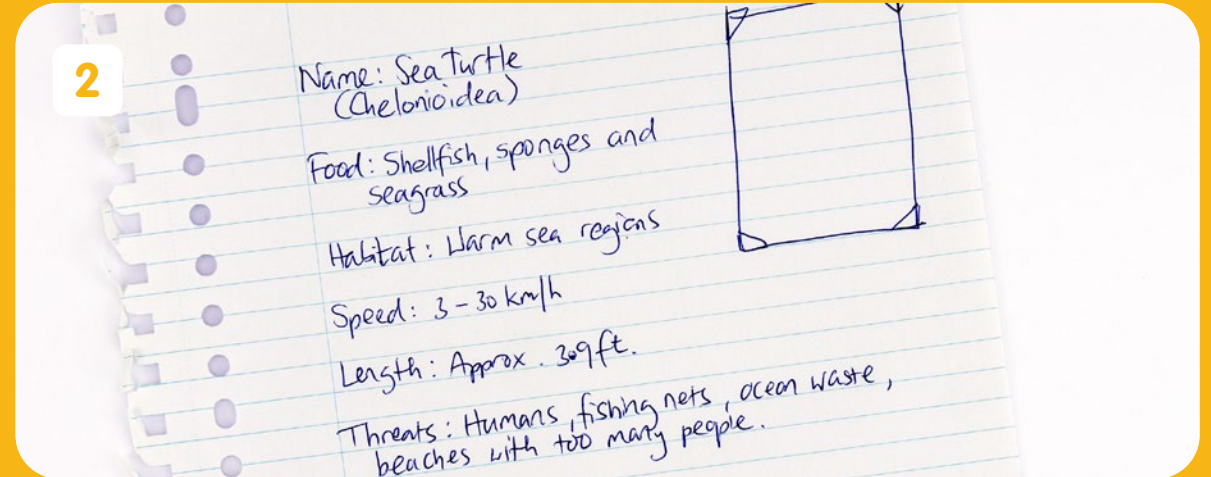 2
Name: Sea Turtle
(Chelonioidea)
Food: Shellfish, sponges and
seagrass
Habitat: Warm sea regions
Speed: 3-30 km/h
Length: Approx. 3.9ft.
Threats: Humans, fishing nets, ocean waste,
beaches with too many people.